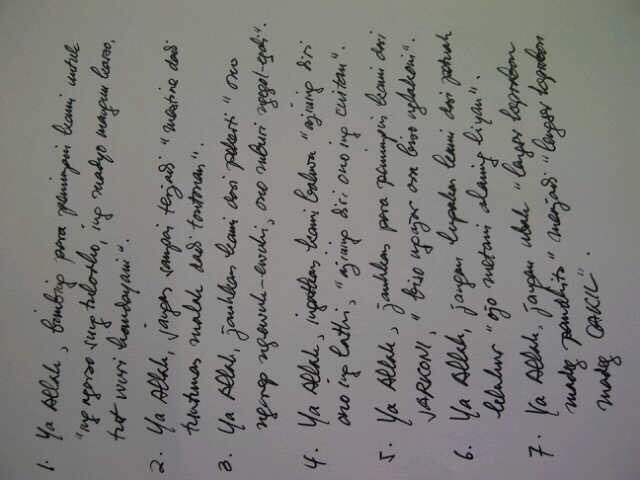 1. Ya Allah, bimbing para pemimpin kami untuk
"ing ngarso sung tulodho, ing madyo mangun karso,
tut wuri handayani".
2. Ya Allah, jangan sampai terjadi "
tuntunan malah dadi tontonan".
3. Ya Allah, jauhkan kami dari pekerti " ono
ngarep ngewuh-ewuhi, ono mburi nggol-
4. Ya Allah, ingatkan kami bahwa "ajining diri
ono ing lathi, "ajining diri ono ing
5. Ya Allah, jauhkan para pemimpin kami dari
JARKONI, " biso ngujar ora biso nglakoni".
6. Ya Allah, jangan lupakan kami dari petuah
leluhur "ojo metani alaning liyan".
7. Ya Allah, jangan ubah "lengser keprabon
madeg pandhito" menjadi "lengser keprabon
madeg CAKIL".